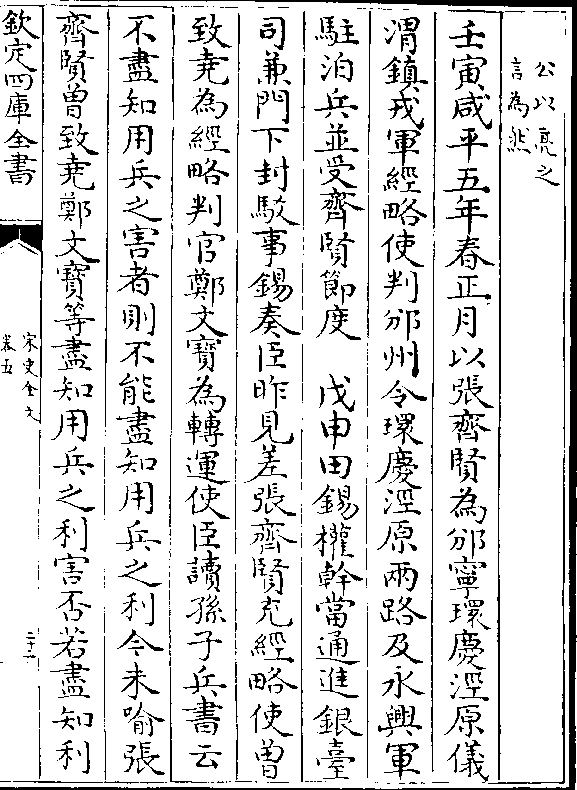 公以亮之
言為然
壬寅咸平五年春正月以張齊賢為邠寧環慶涇原儀
渭鎮戎軍經略使判邠州令環慶涇原兩路及永興軍
駐泊兵並受齊賢節度　戊申田錫權幹當通進銀臺
司兼門下封駁事錫奏臣昨見差張齊賢充經略使曾
致堯為經略判官鄭文寶為轉運使臣讀孫子兵書云
不盡知用兵之害者則不能盡知用兵之利今未喻張
齊賢曾致堯鄭文寶等盡知用兵之利害否若盡知利
欽定四庫全書
宋史全文
卷五
二十二